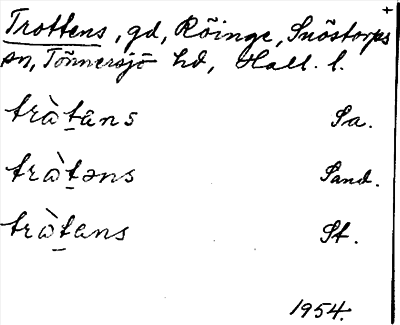 +
Trottens, gd, Röinge, Snöstorps
sn, Tönnersjö hd, Hall. l.
tràt̲âns Sa.
tràt̲əns Sand.
tràt̲ens St.
1954.